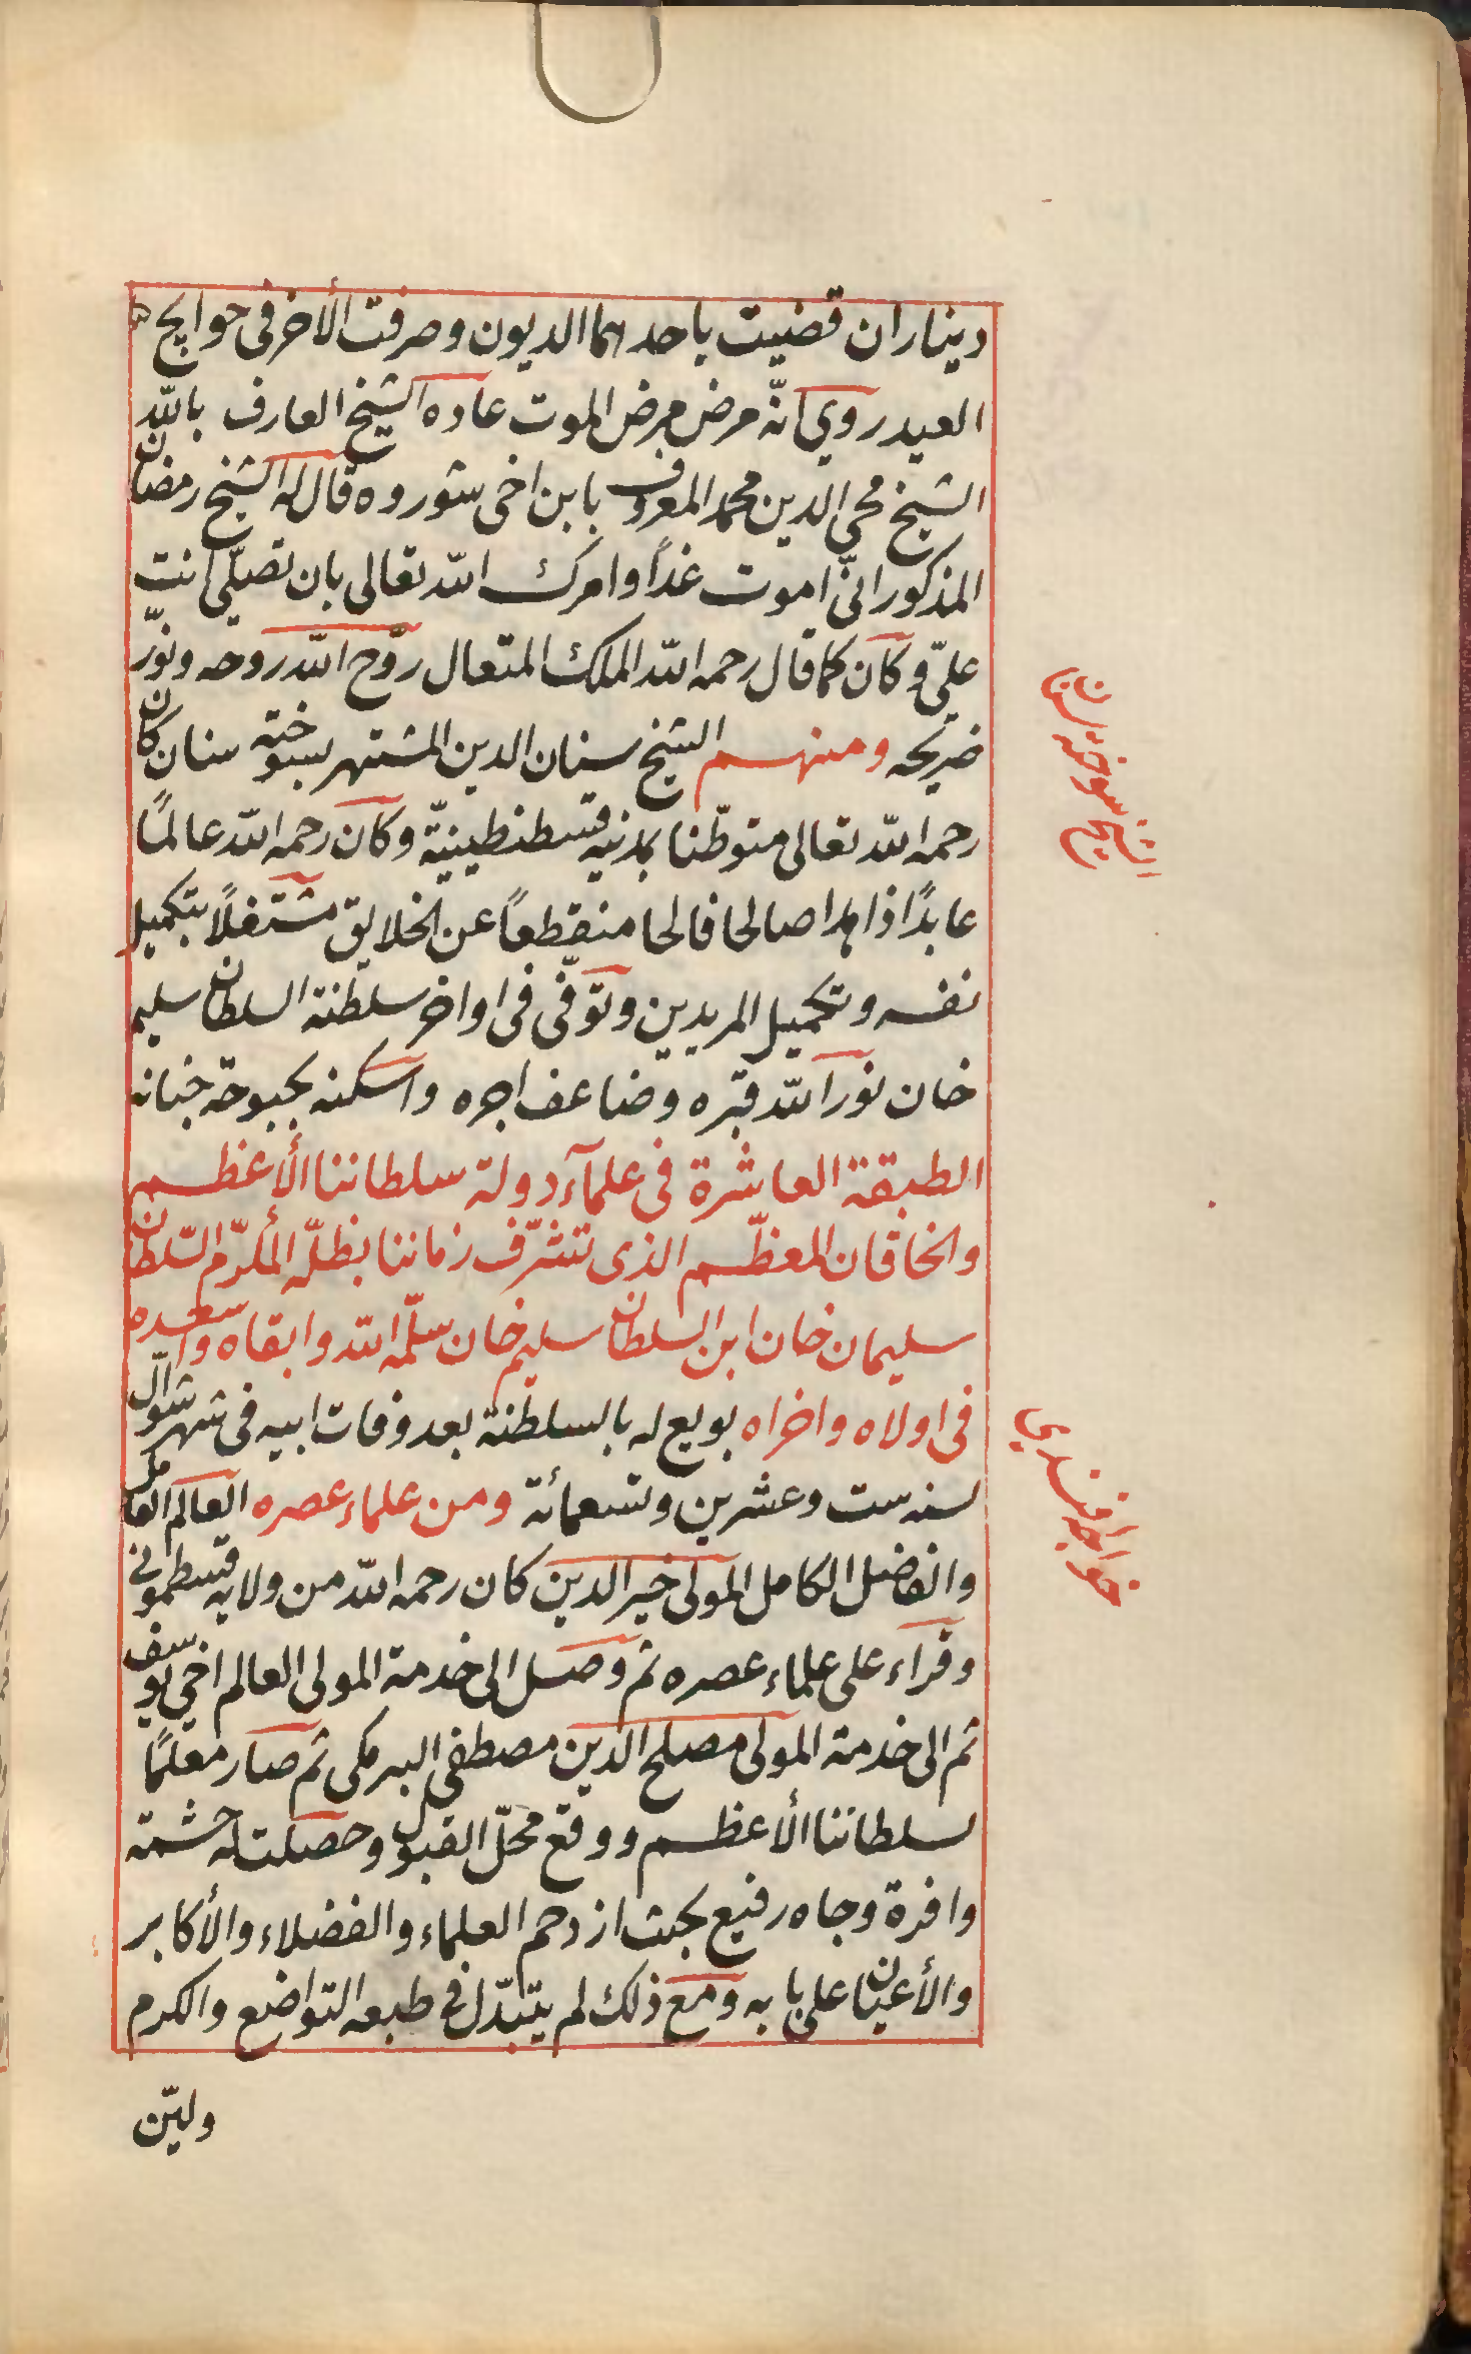 ديناران قضيت باحدهما الديون وصرفت الأخر فى حوايج
العيد روي انّه مرض مرض الموت عاده الشيخ العارف بالله
الشيخ محي الدين محمد المعروف بابن اخى شوروه قال له الشيخ رمضان
المذكور انّى اموت غدًا وامرك الله تعالى بان تصلّى انت
علىّ وكان كما قال رحمه الله الملك المتعال روّح الله روحه ونوّر
ضريحه ومنهم الشيخ سنان الدين المشتهر بسوخته سنان كان
رحمه الله تعالى متوطّنا بمدنية قسطنطينيّة وكان رحمه الله عالمًا
عابدًا زاهدا صالحا فالحا منقطعًا عن الخلايق مشتغلًا بتكميل
نفسه وتكميل المريدين وتوفّى فى اواخر سلطنة السلطان سليم
خان نوّر الله قبره وضاعف اجره واسكنه بحبوحة جنانه
الطبقة العاشرة فى علماء دولة سلطاننا الأعظم
والخاقان المعظّم الذى تتشرّف زماننا بظلّه المكرّم السّلطان
سليمان خان ابن السلطان سليم خان سلّمه الله وابقاه واسعده
فى اولاه واخراه بويع له بالسلطنة بعد وفات ابيه فى شهر شوّال
لسنه ست وعشرين وتسعمائة ومن علماء عصره العالم العامل
والفاضل الكامل المولى خير الدين كان رحمه الله من ولايه قسطمونى
وقراء على علماء عصره ثم وصل الى خدمة المولى العالم اخى يوسف
ثم الى خدمة المولى مصلح الدين مصطفى البرمكى ثم صار معلمًا
لسلطاننا الأعظم ووقع محلّ القبول وحصلت له حشمة
وافرة وجاه رفيع بحيث ازدحم العلماء والفضلاء والأكابر
والأعيان على بابه ومع ذلك لم يتبدّل فى طبعه التواضع والكرم
وليّن
الشيخ سوخته سنان
خواجه افندي